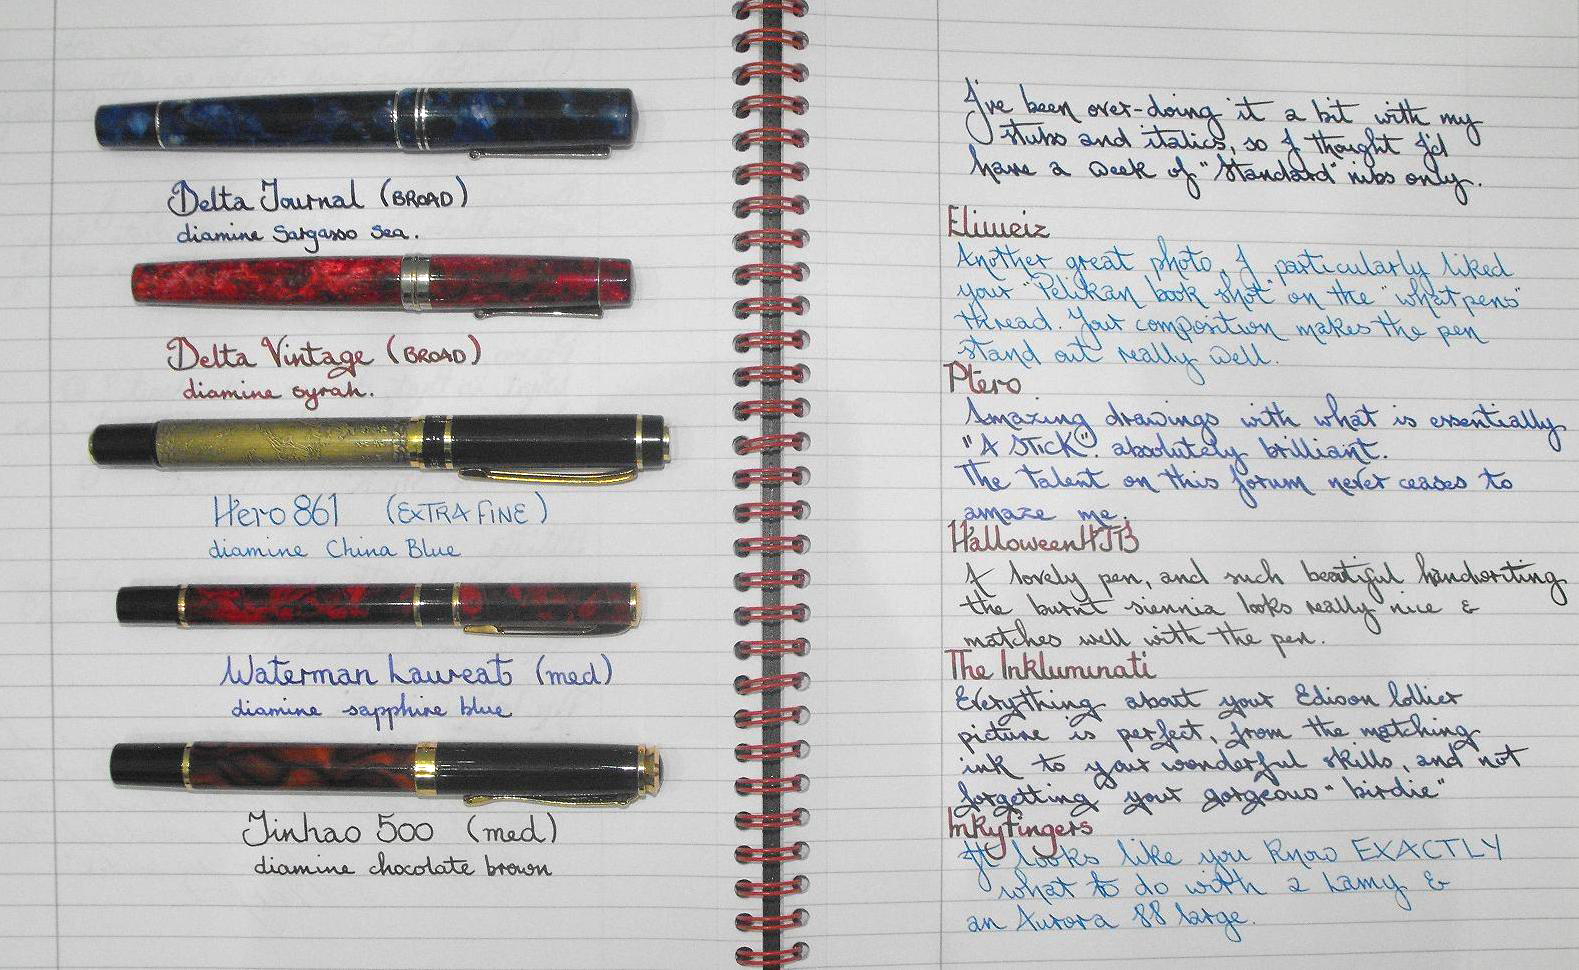 Delta Journal (BROAD)
diamine Sargasso Sea.
Delta Vintage (BROAD)
diamine syrah.
Hero 861 (EXTRA FINE)
diamine China Blue
Waterman Laureat (med)
diamine sapphire blue
Jinhao 500 (med)
diamine chocolate brown
I've been over-doing it a bit with my
stubs and italics, so I thought I'd
have a week of "Standard" nibs only.
Eliweiz
Another great photo, I particularly liked
your "Pelikan book shot" on the "what pens"
thread. Your composition makes the pen
stand out really well.
Ptero
Amazing drawings with what is essentially
"A STICK". absolutely brilliant.
The talent on this forum never ceases to
amaze me.
HalloweenHJB
A lovely pen, and such beautiful handwriting
the burnt siennia looks really nice &
matches well with the pen.
The Inkluminati
Everything about your Edison Collier
picture is perfect, from the matching
ink to your wonderful skills, and not
forgetting your gorgeous "birdie"
Inkyfingers
It looks like you know EXACTLY
what to do with a Lamy &
an Aurora 88 large.